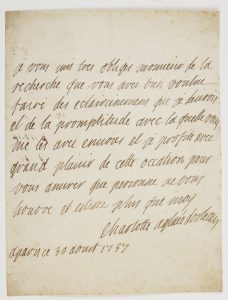 je vous suis tres obligée monsieur de la
recherche que vous aves bien voulue
faire des eclaircissemens que je desirois
et de la promptitude avec la quelle vous
me les aves envoies et je profite avec
grand plaisir de cette occation pour
vous assurer que personne ne vous
honore et estime plus que moy
Charlotte aglaé
a paris ce 30 aoust 1737